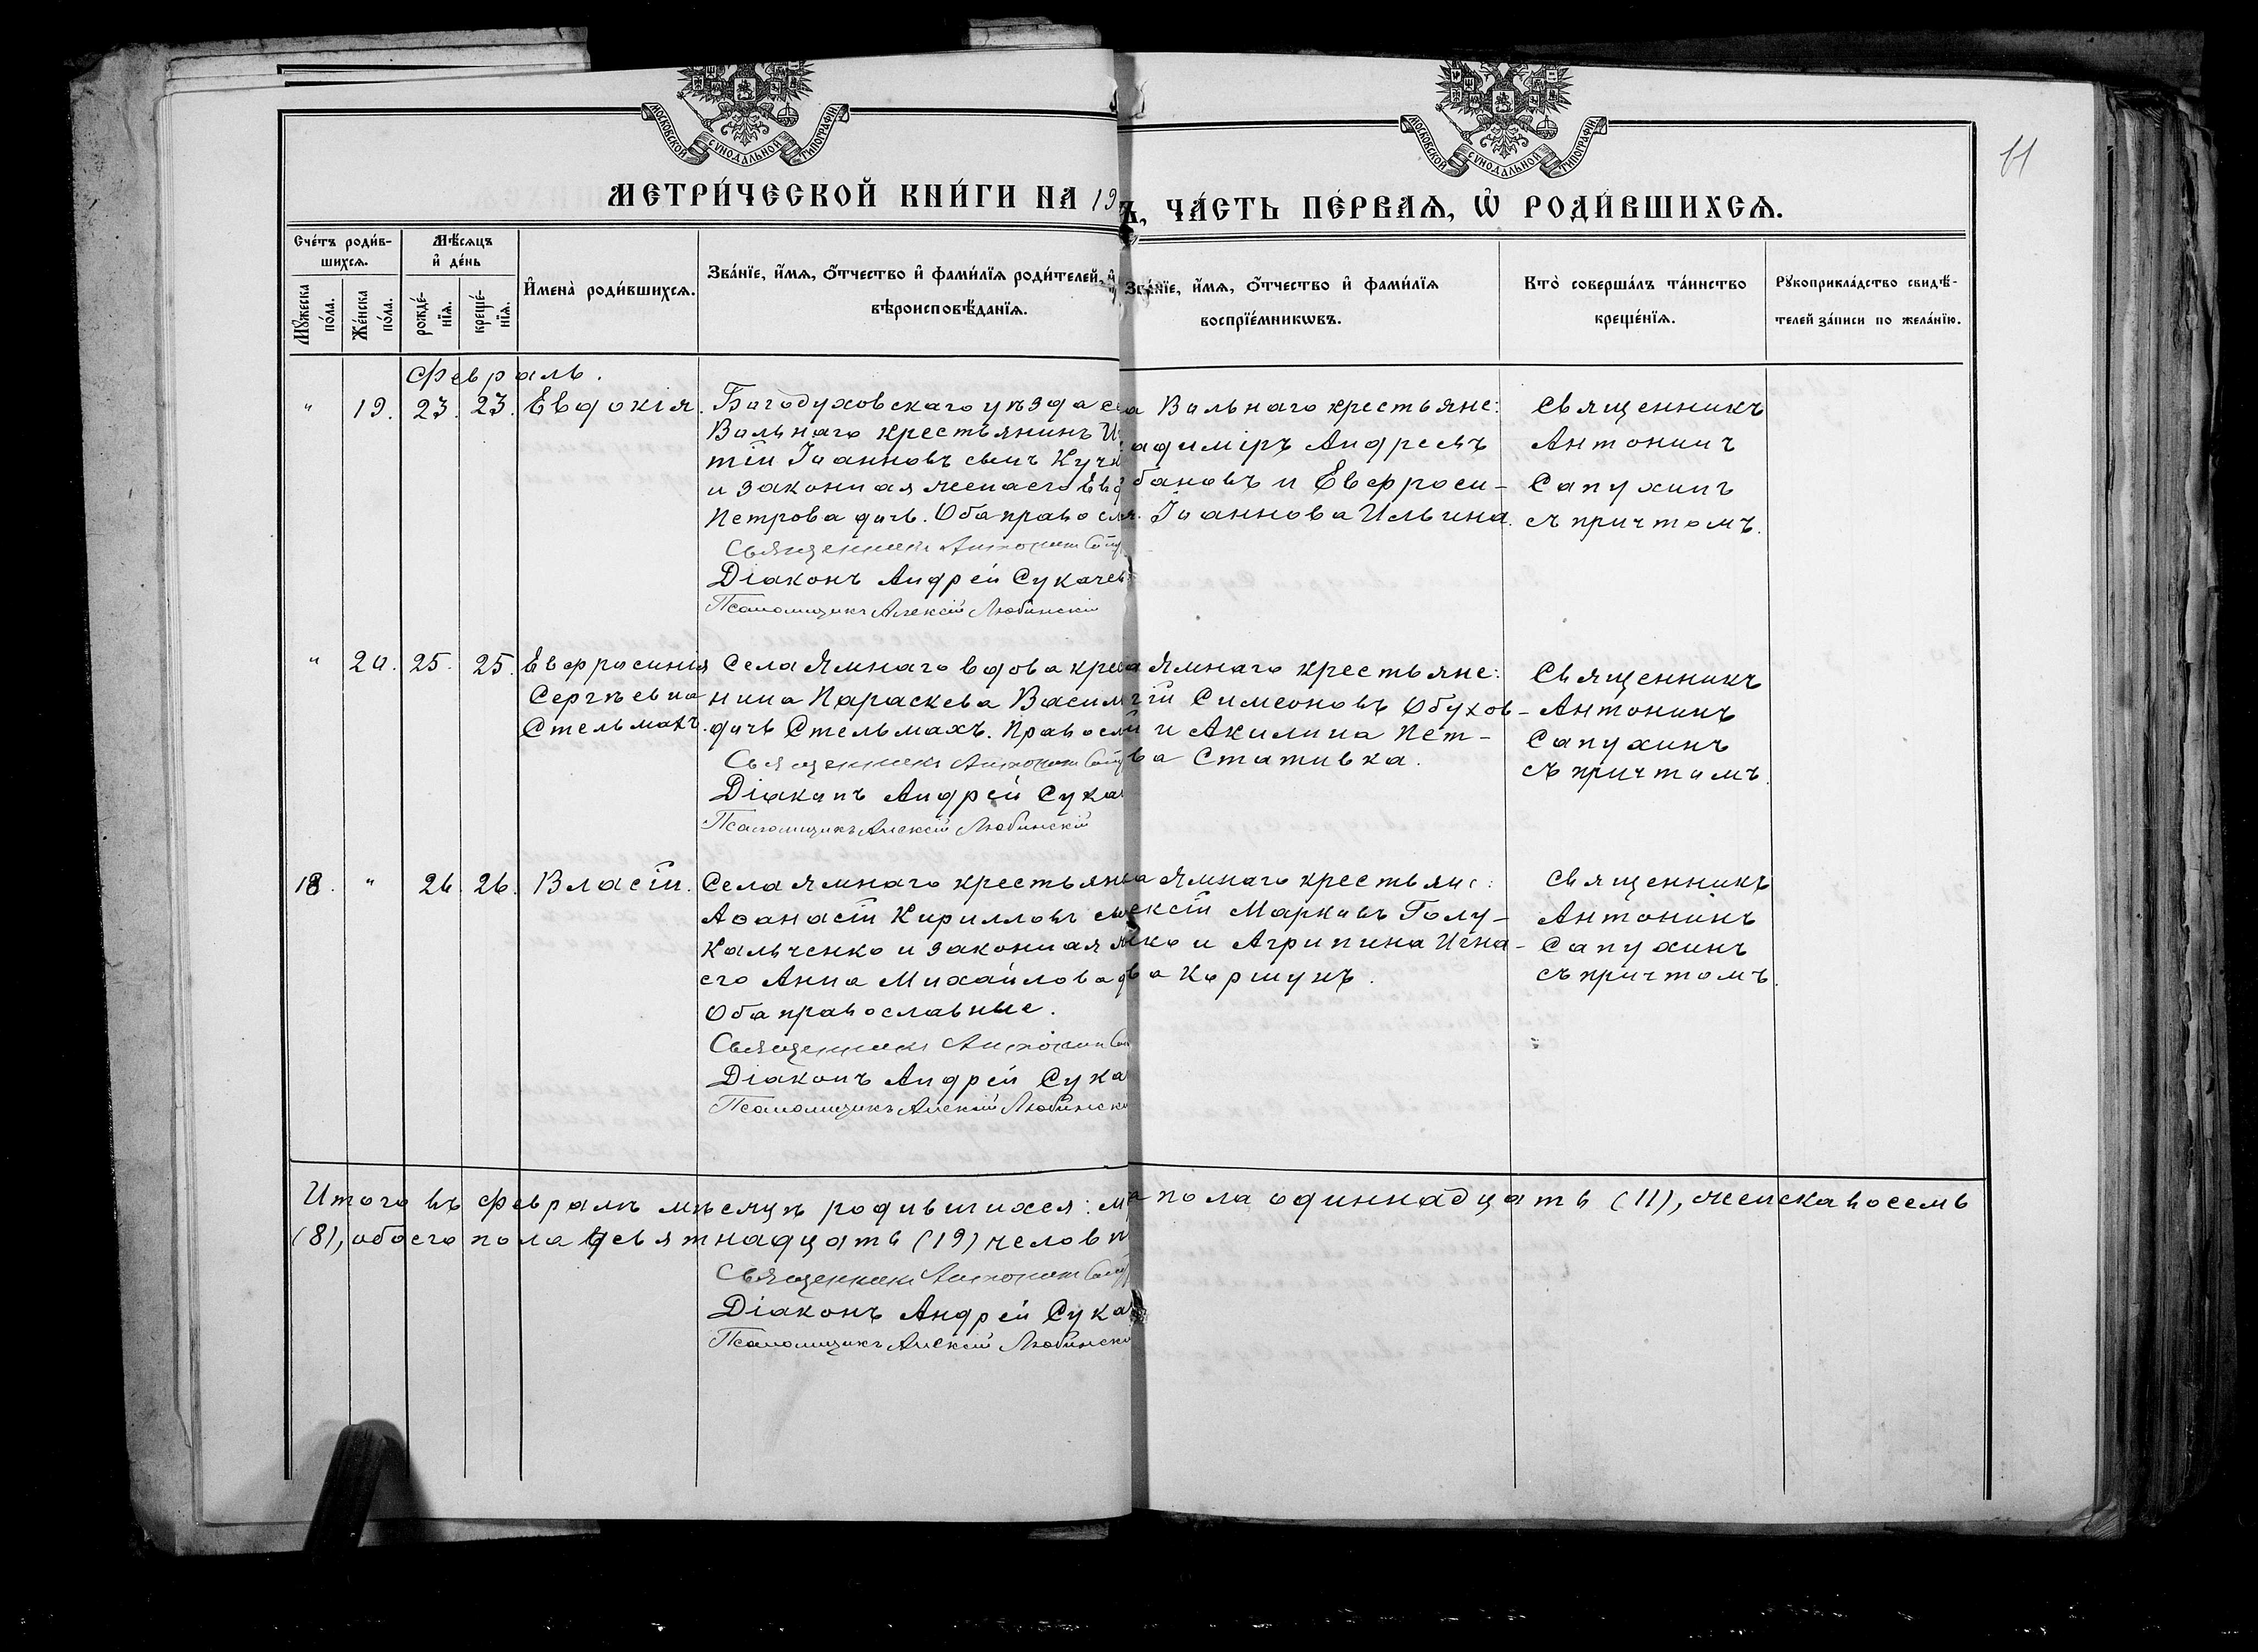 МОСКОВСКОЙ СѴНОДАЛЬНОЙ ТИПОГРАФІИ
МОСКОВСКОЙ СѴНОДАЛЬНОЙ ТИПОГРАФІИ
11
МЕТРИ́ЧЕСКОЙ КНИ́ГИ НА 19
Ъ, ЧА́СТЬ ПЕ́РВАѦ, Ѡ҆ РОДИ́ВШИХСѦ.
Сче́тъ роди́в-
шихсѧ.
Мѣ́сѧцъ
и҆ де́нь
Мꙋ́жеска
по́ла.
Же́нска
по́ла.
рожде́-
нїѧ.
креще́-
нїѧ.
И҆мена̀ роди́вшихсѧ.
Зва́нїе, и҆́мѧ, ѻ҆́тчество и҆ фами́лїѧ роди́телей, и҆
вѣроисповѣ́данїѧ.
Зва́нїе, и҆́мѧ, ѻ҆́тчество и҆ фами́лїѧ
воспрїе́мникѡвъ.
Кто̀ соверша́лъ та́инство
креще́нїѧ.
Рꙋкоприкла́дство свидѣ́-
телей за́писи по жела́нїю.
Февраль.
" 19. 23. 23. Евдокія. Богодуховскаго уѣзда се
Вольнаго крестьянинъ И
тій Іоанновъ сынъ Куч
и законная жена его Евд
Петрова дочь. Оба правосл
Священникъ Антонин Сапу
Діаконъ Андрей Сукачев
Псаломщикъ Алексій Любинскій
а Вольнаго крестьяне:
адиміръ Андреевъ
бановъ и Евфроси-
я. Іоаннова Ильина.
Священникъ
Антонинъ
Сапухинъ
съ причтомъ.
" 20. 25. 25. Евфросинія Села Ямнаго вдова крес
Сергѣевна нина Параскева Васил
Стельмахъ. дочь Стельмахъ. Правосл
Священникъ Антонин Сапу
Діаконъ Андрей Сука
Псаломщикъ Алексій Любинскій
а Ямнаго крестьяне:
гій Симеоновъ Обухов-
й и Акилина Пет-
ва Стативка.
Священникъ
Антонинъ
Сапухинъ
съ причтомъ.
18. " 26. 26. Власій. Села Ямнаго крестьян
Аѳанасій Кирилловъ сы
Кальченко и законная ж
его Анна Михайлова д
Оба православные.
Священникъ Антонин Сап
Діаконъ Андрей Сука
Псаломщикъ Алексій Любинскі
а Ямнаго крестьяне:
ексій Марковъ Голу-
нко и Агрипина Игна-
ва Коршунъ.
Священникъ
Антонинъ
Сапухинъ
съ причтомъ.
Итого въ февралѣ мѣсяцѣ родившихся: м а пола одиннадцать (11), женска восемь
(8), обоего пола девятнадцать (19) человѣ
Священникъ Антонин Сапу
Діаконъ Андрей Сука
Псаломщикъ Алексій Любинскі